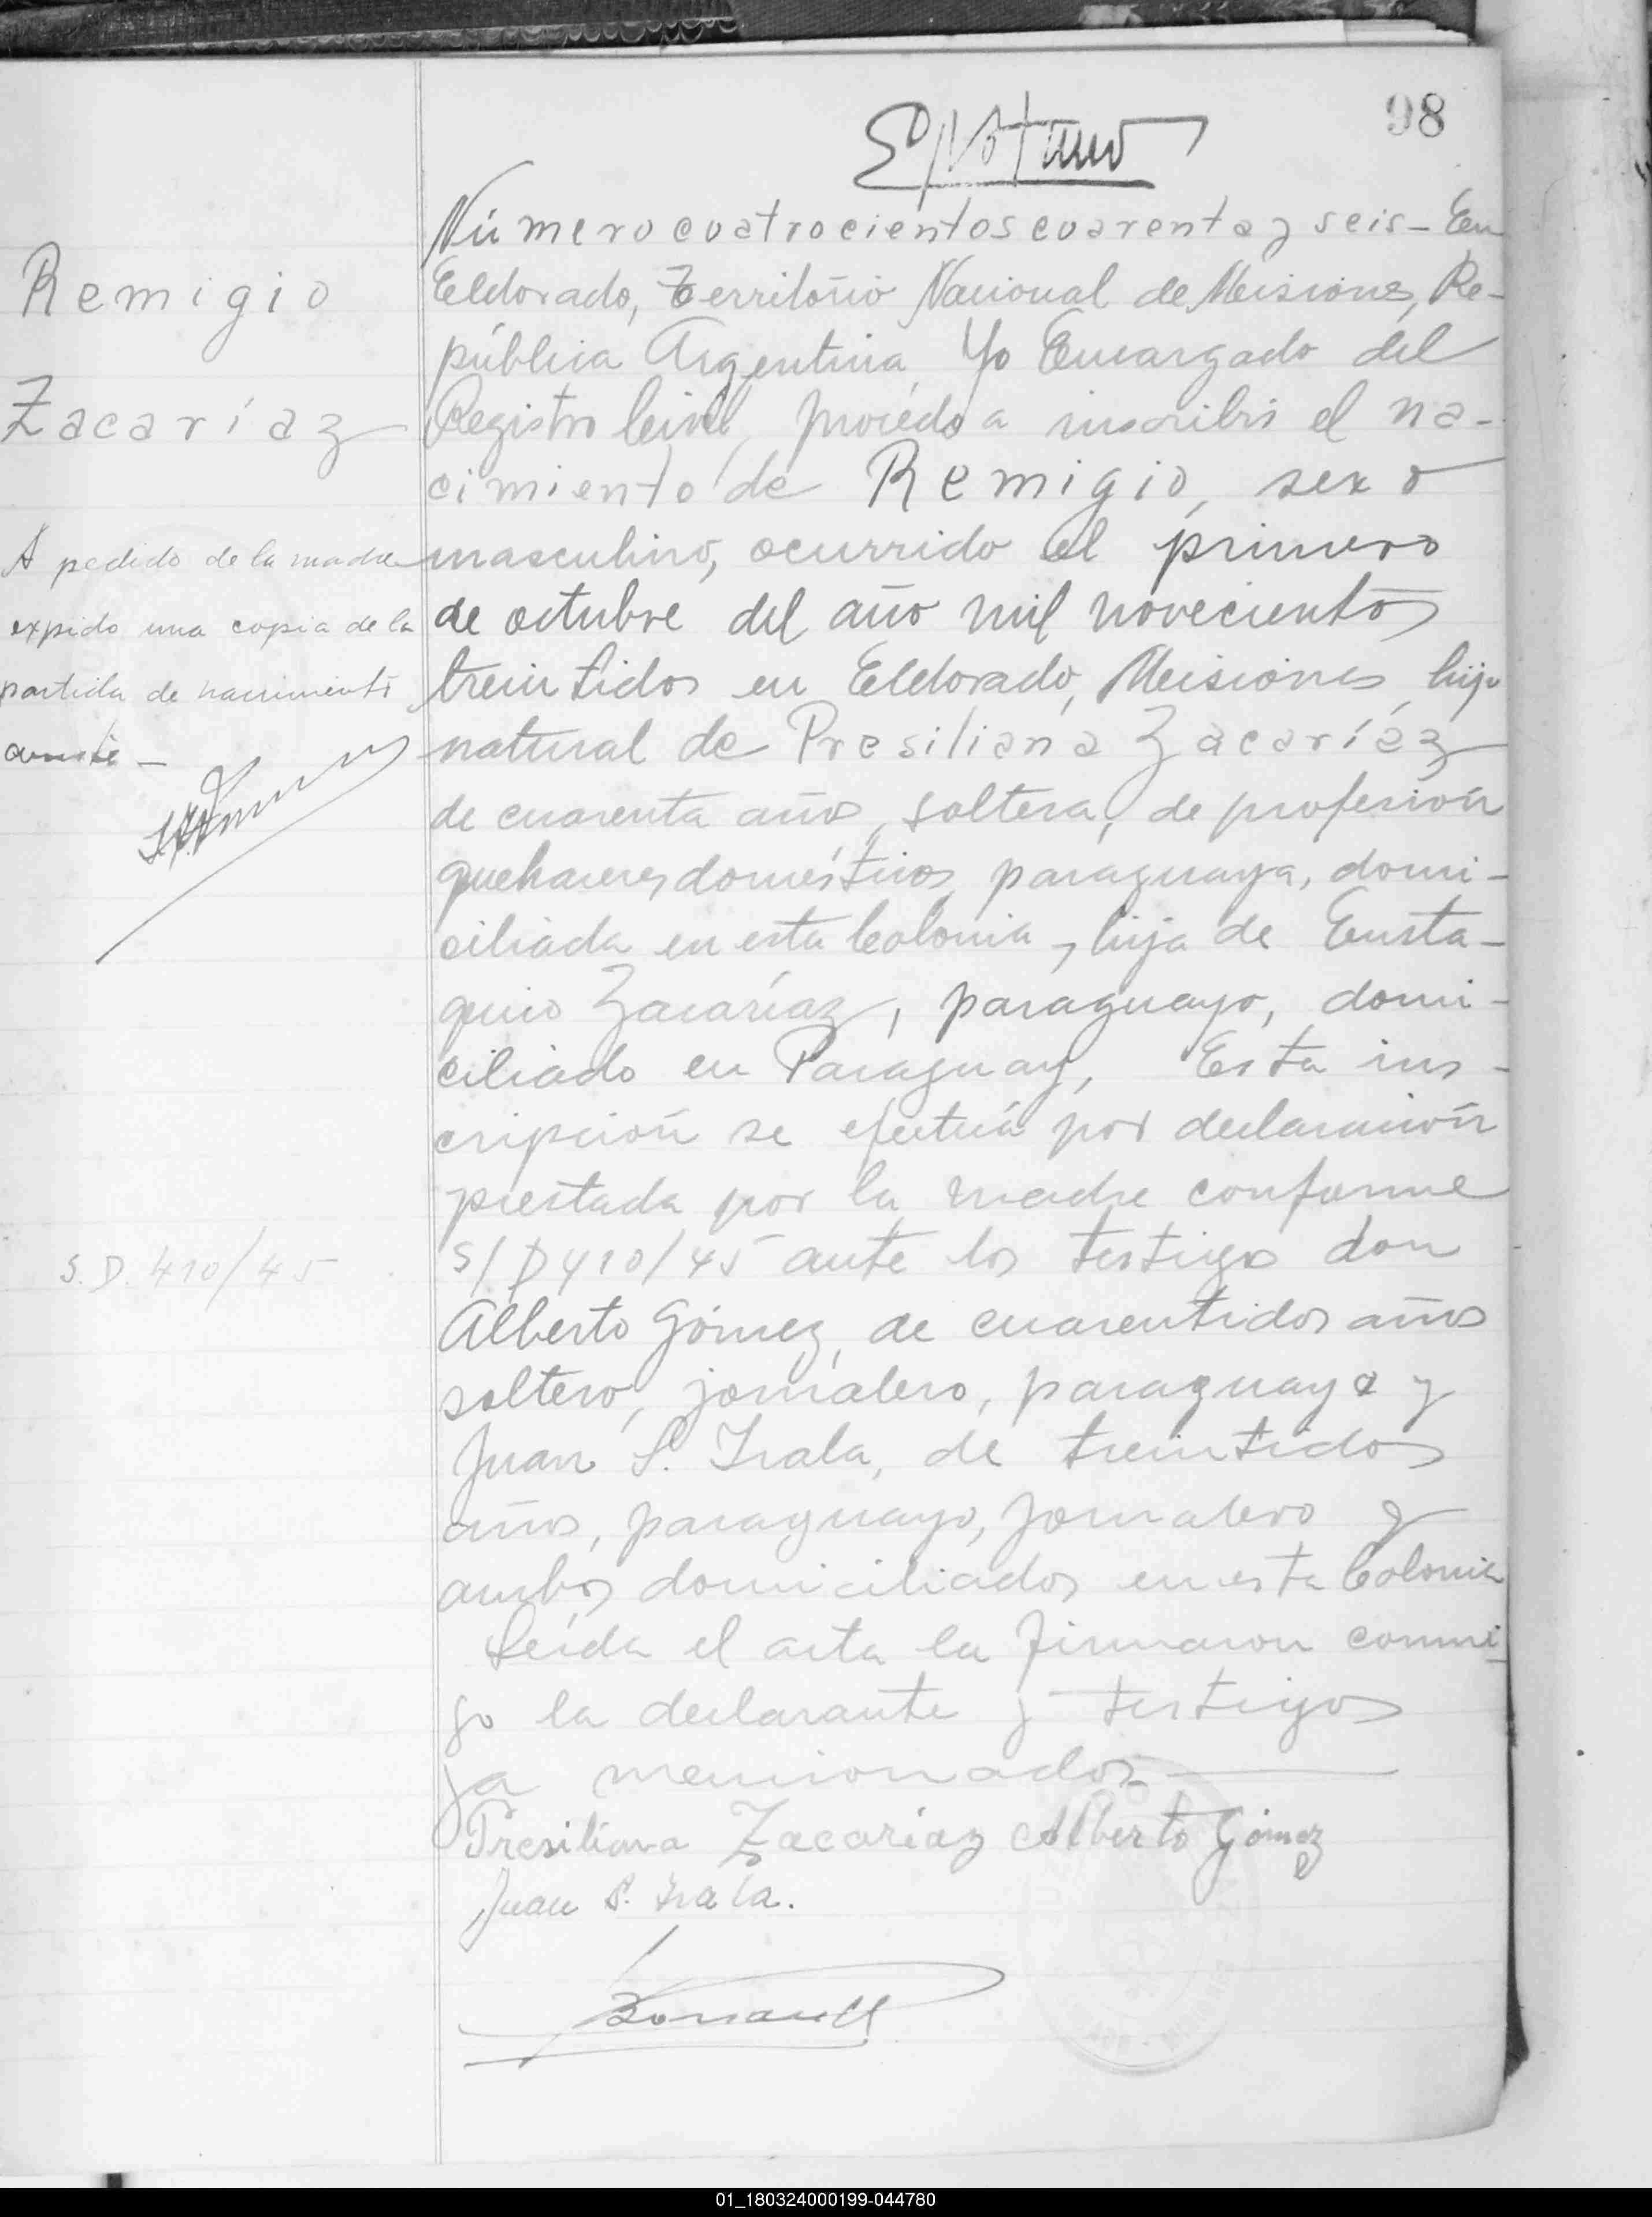 98
Número cuatrocientos cuarenta y seis - En
Eldorado, Territorio Nacional de Misiones, Re-
pública Argentina, Yo Encargado del
Registro Civil, procedo a inscribir el na-
cimiento de Remigio, sexo
masculino, ocurrido el primero
de octubre del año mil novecientos
treintidos en Eldorado, Misiones, hijo
natural de Presiliana Zacaríaz
de cuarenta años, soltera, de profesión
quehaceres domésticos, paraguaya, domi-
ciliada en esta Colonia, hija de Eusta-
quio Zacaríaz, paraguayo, domi-
ciliado en Paraguay, Esta ins-
cripción se efectúa por declaración
prestada por la madre conforme
S/D 410/45 ante los testigos don
Alberto Gómez, de cuarentidos años
soltero, jornalero, paraguayo y
Juan S. Irala, de treintidos
años, paraguayo, jornalero y
ambos domiciliados en esta Colonia
Leída el acta la firmaron conmi-
go la declarante y testigos
ya mencionados
Presiliana Zacaríaz Alberto Gómez
Juan S. Irala.
Remigio
Zacaríaz
A pedido de la madre
expido una copia de la
partida de nacimiento
S.D. 410/45
01_180324000199-044780